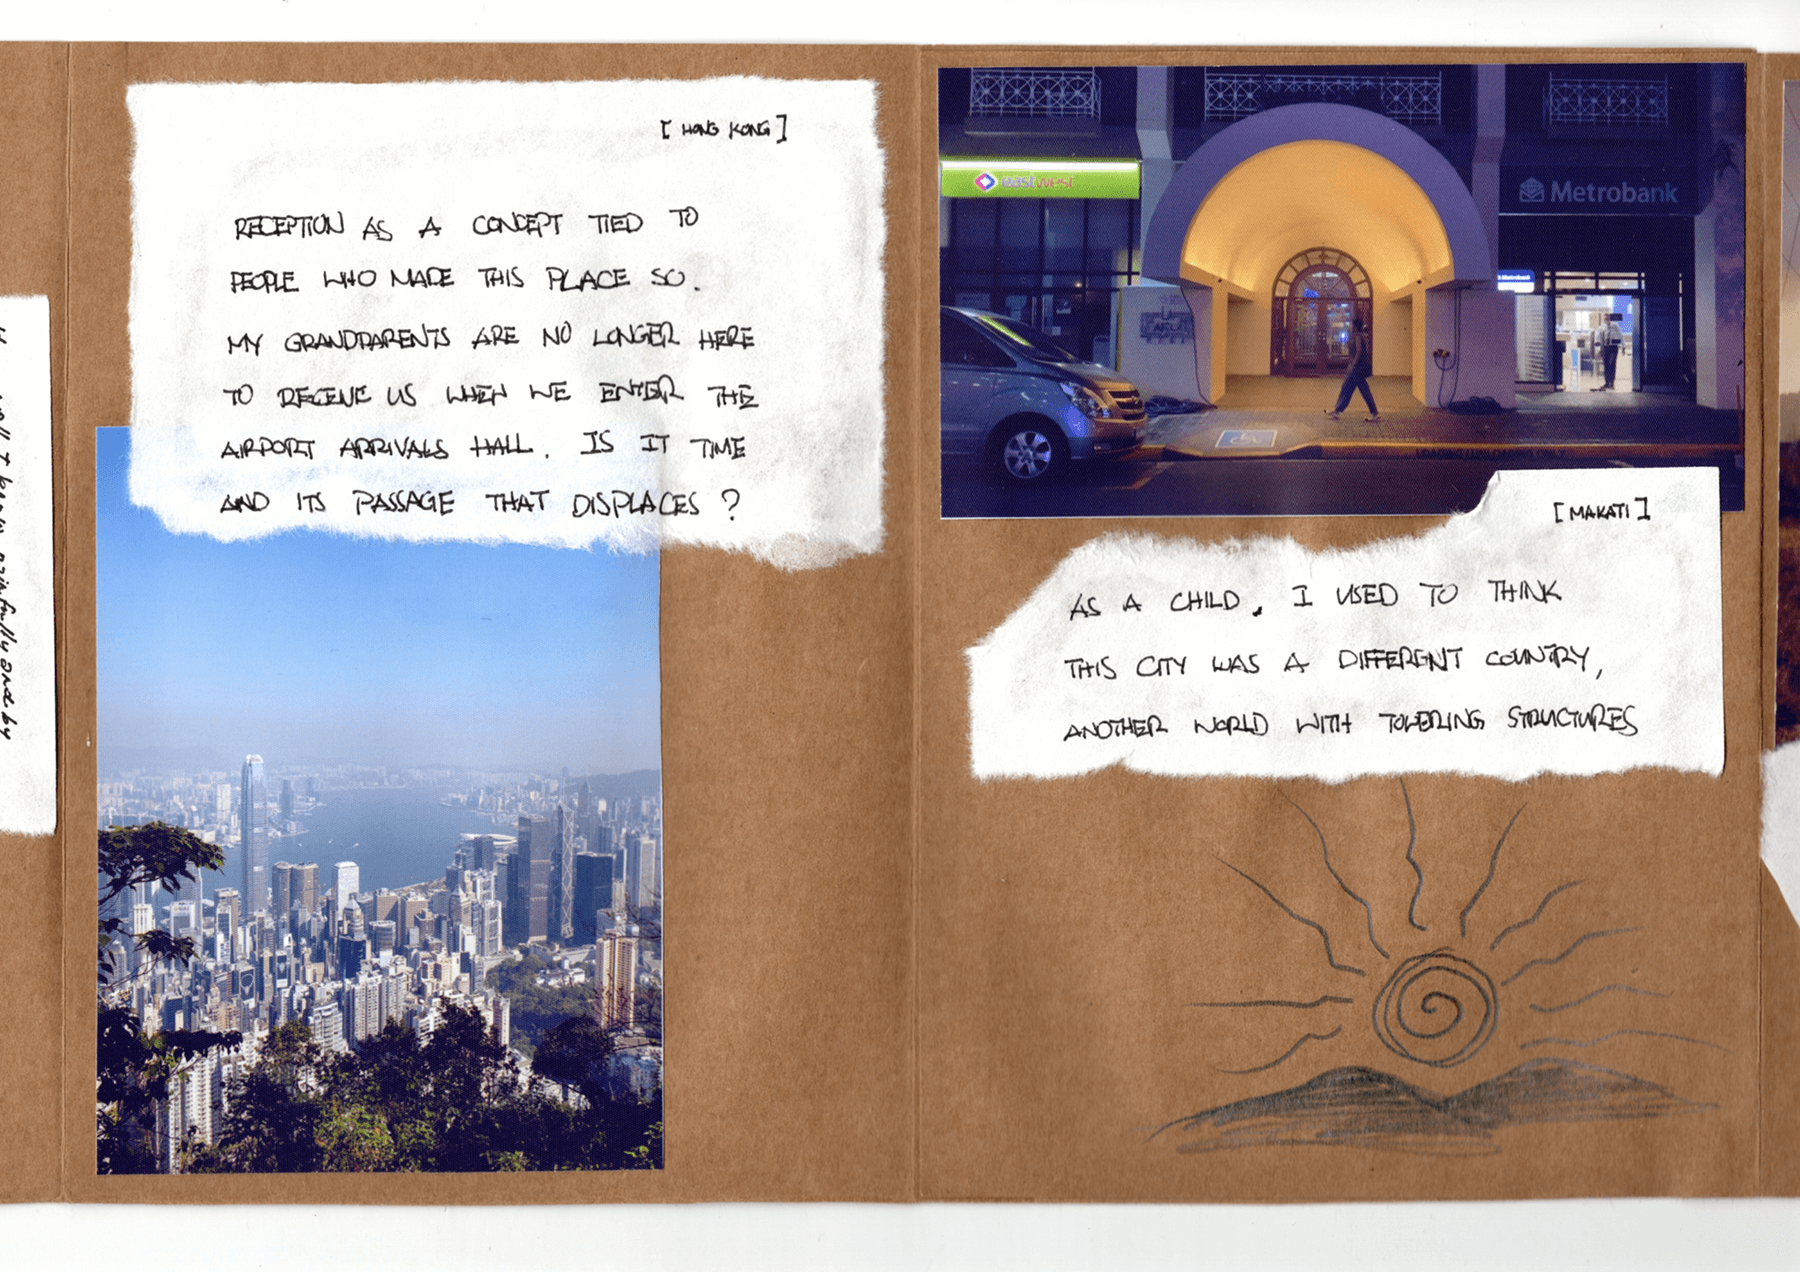 [HONG KONG]
RECEPTION AS A CONCEPT TIED TO
PEOPLE WHO MADE THIS PLACE SO.
MY GRANDPARENTS ARE NO LONGER HERE
TO RECEIVE US WHEN WE ENTER THE
AIRPORT ARRIVALS HALL. IS IT TIME
AND ITS PASSAGE THAT DISPLACES?
eastwest
Metrobank
Metrobank
[MAKATI]
AS A CHILD, I USED TO THINK
THIS CITY WAS A DIFFERENT COUNTRY,
ANOTHER WORLD WITH TOWERING STRUCTURES